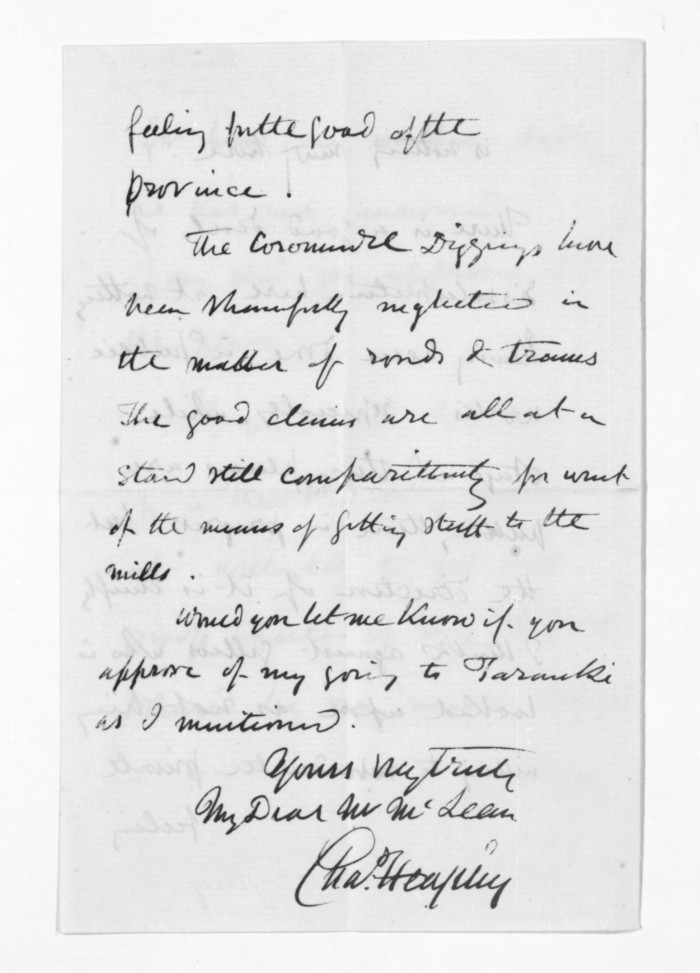 feeling for the good of the
province.
The Coromandel Diggings have
been shamefully neglected in
the matter of roads & trams
The good claims are all at a
stand still comparitively for want
of the means of getting stuff to the
mills.
Would you let me know if you
approve of my going to Taranki
as I mentioned.
Yours very truly
My Dear Mr McLean
Chas. Heaphy